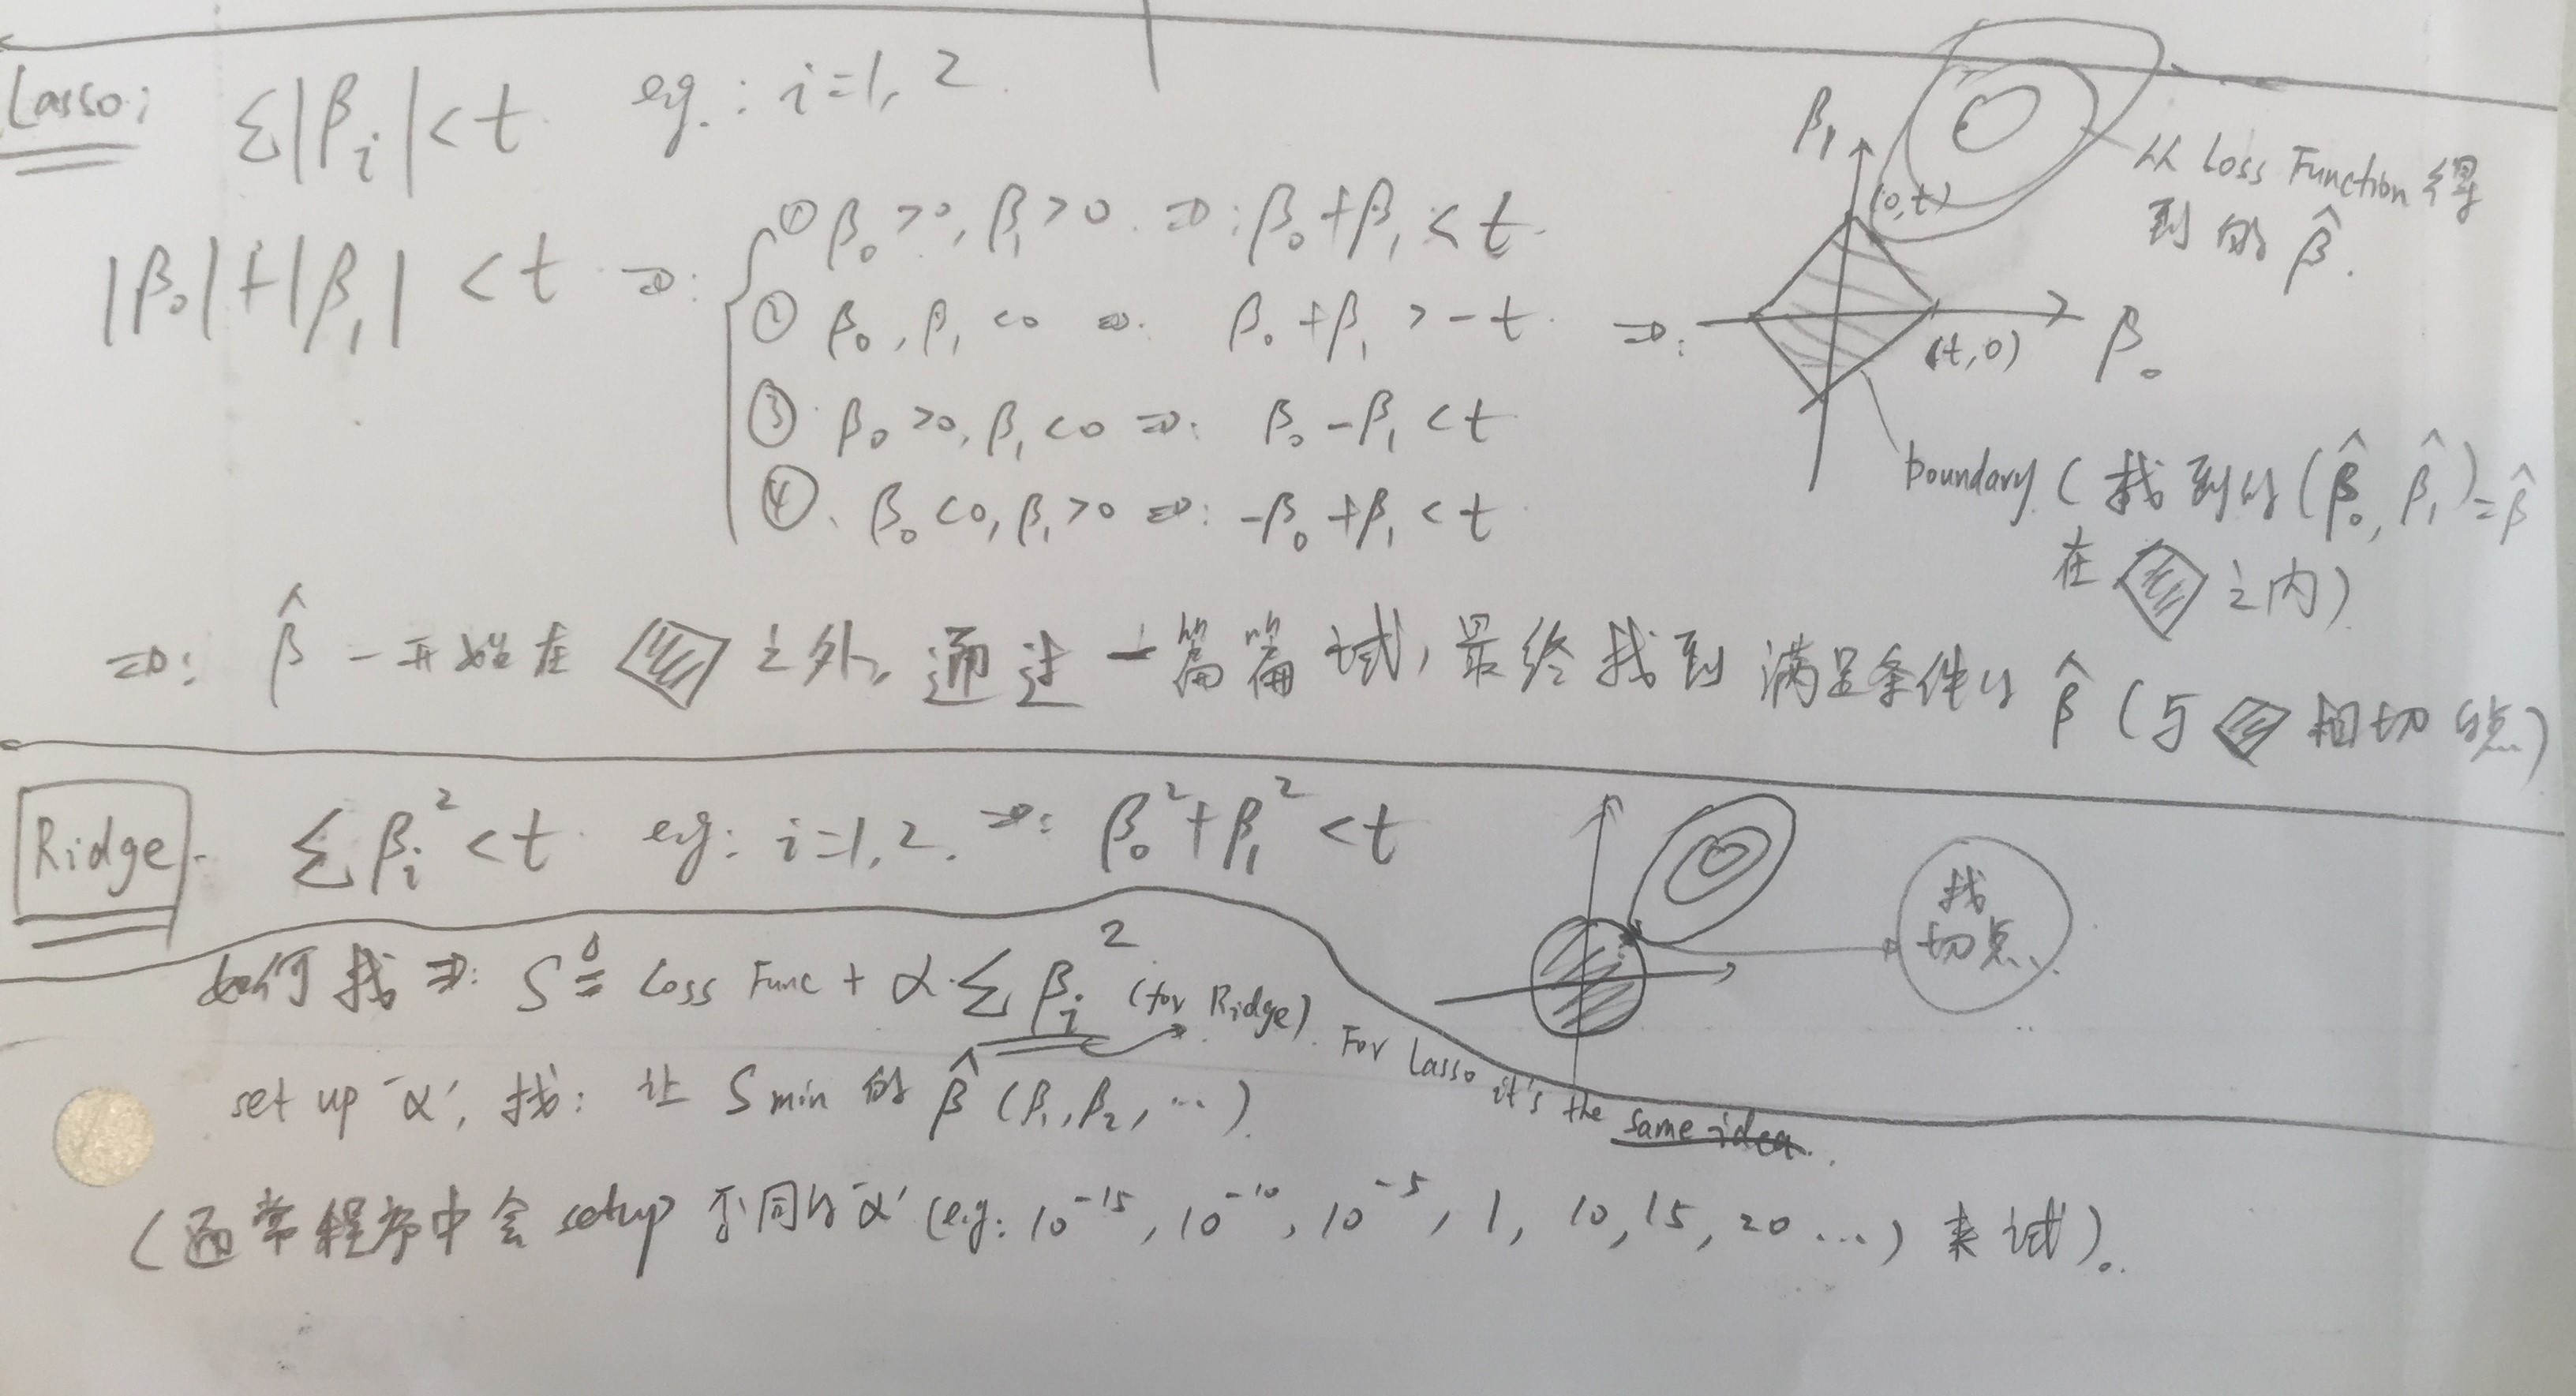 Lasso: Σ|βᵢ| < t eg.: i=1, 2.
|β₀|+|β₁| < t ⇒:
① β₀ >0, β₁ >0. ⇒: β₀+β₁ < t.
② β₀, β₁ <0 ⇒: β₀+β₁ > -t.
③ β₀ >0, β₁ <0 ⇒: β₀-β₁ < t
④. β₀ <0, β₁ >0 ⇒: -β₀+β₁ < t
⇒:
β₁
(0,t)
(t,0)
β₀
从 Loss Function 得
到的 β̂.
boundary (找到的(β̂₀, β̂₁)=β̂
在 之内)
⇒: β̂ 一开始在 之外, 通过一篇篇试, 最终找到满足条件的 β̂ (与 相切的点)
Ridge. Σβᵢ² < t. eg: i=1,2. ⇒: β₀²+β₁² < t
找
切点..
如何找 ⇒: S ≜ Loss Func + α·Σβᵢ² (for Ridge). For Lasso it's the same idea.
set up 'α', 找: 让 S min 的 β̂ (β₁, β₂, ...).
(通常程序中会 setup 不同的 'α' (e.g: 10⁻¹⁵, 10⁻¹⁰, 10⁻⁵, 1, 10, 15, 20 ...) 来试)。